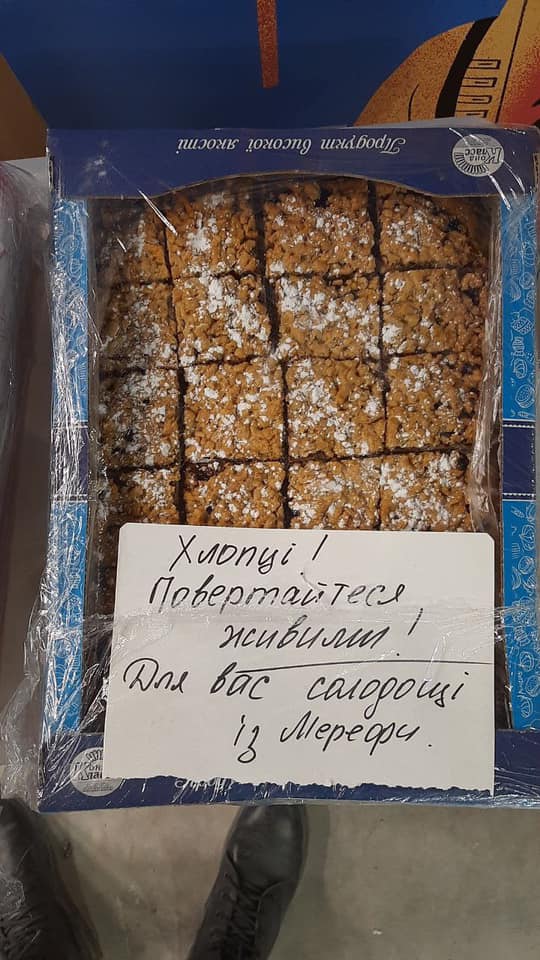 Продукт високої якості
Хлопці!
Повертайтеся
живими!
Для вас солодощі
із Мерефи.